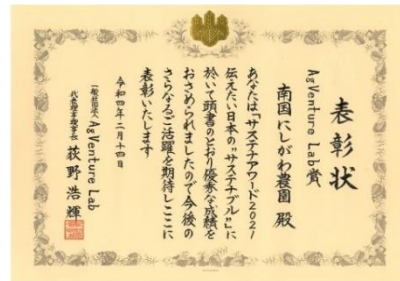 表彰状
AgVenture Lab賞
南国にしがわ農園 殿
あなたは「サステナアワード2021
伝えたい日本の"サステナブル"」に
於いて頭書のとおり優秀な成績を
おさめられましたので今後の
さらなるご活躍を期待しここに
表彰いたします
令和四年二月十四日
一般社団法人 AgVenture Lab
代表理事理事長 荻野浩輝